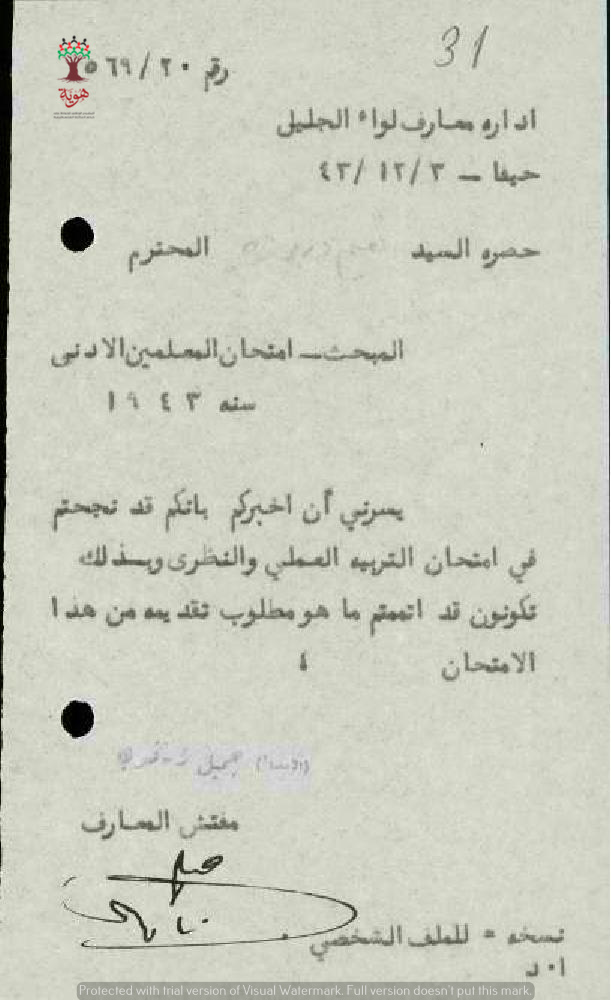 31
هوية
رقم ٢٠/٥٦٩
اداره معارف لواء الجليل
حيفا – ٣/ ١٢/ ٤٣
حضره السيد المحترم
المبحث – امتحان المعلمين الادنى
سنه ١٩٤٣
يسرني أن اخبركم بانكم قد نجحتم
في امتحان التربيه العملي والنظرى وبذلك
تكونون قد اتممتم ما هو مطلوب تقديمه من هذا
الامتحان
جميل
مفتش المعارف
نسخه = للملف الشخصي
ا٠د
Protected with trial version of Visual Watermark. Full version doesn't put this mark.